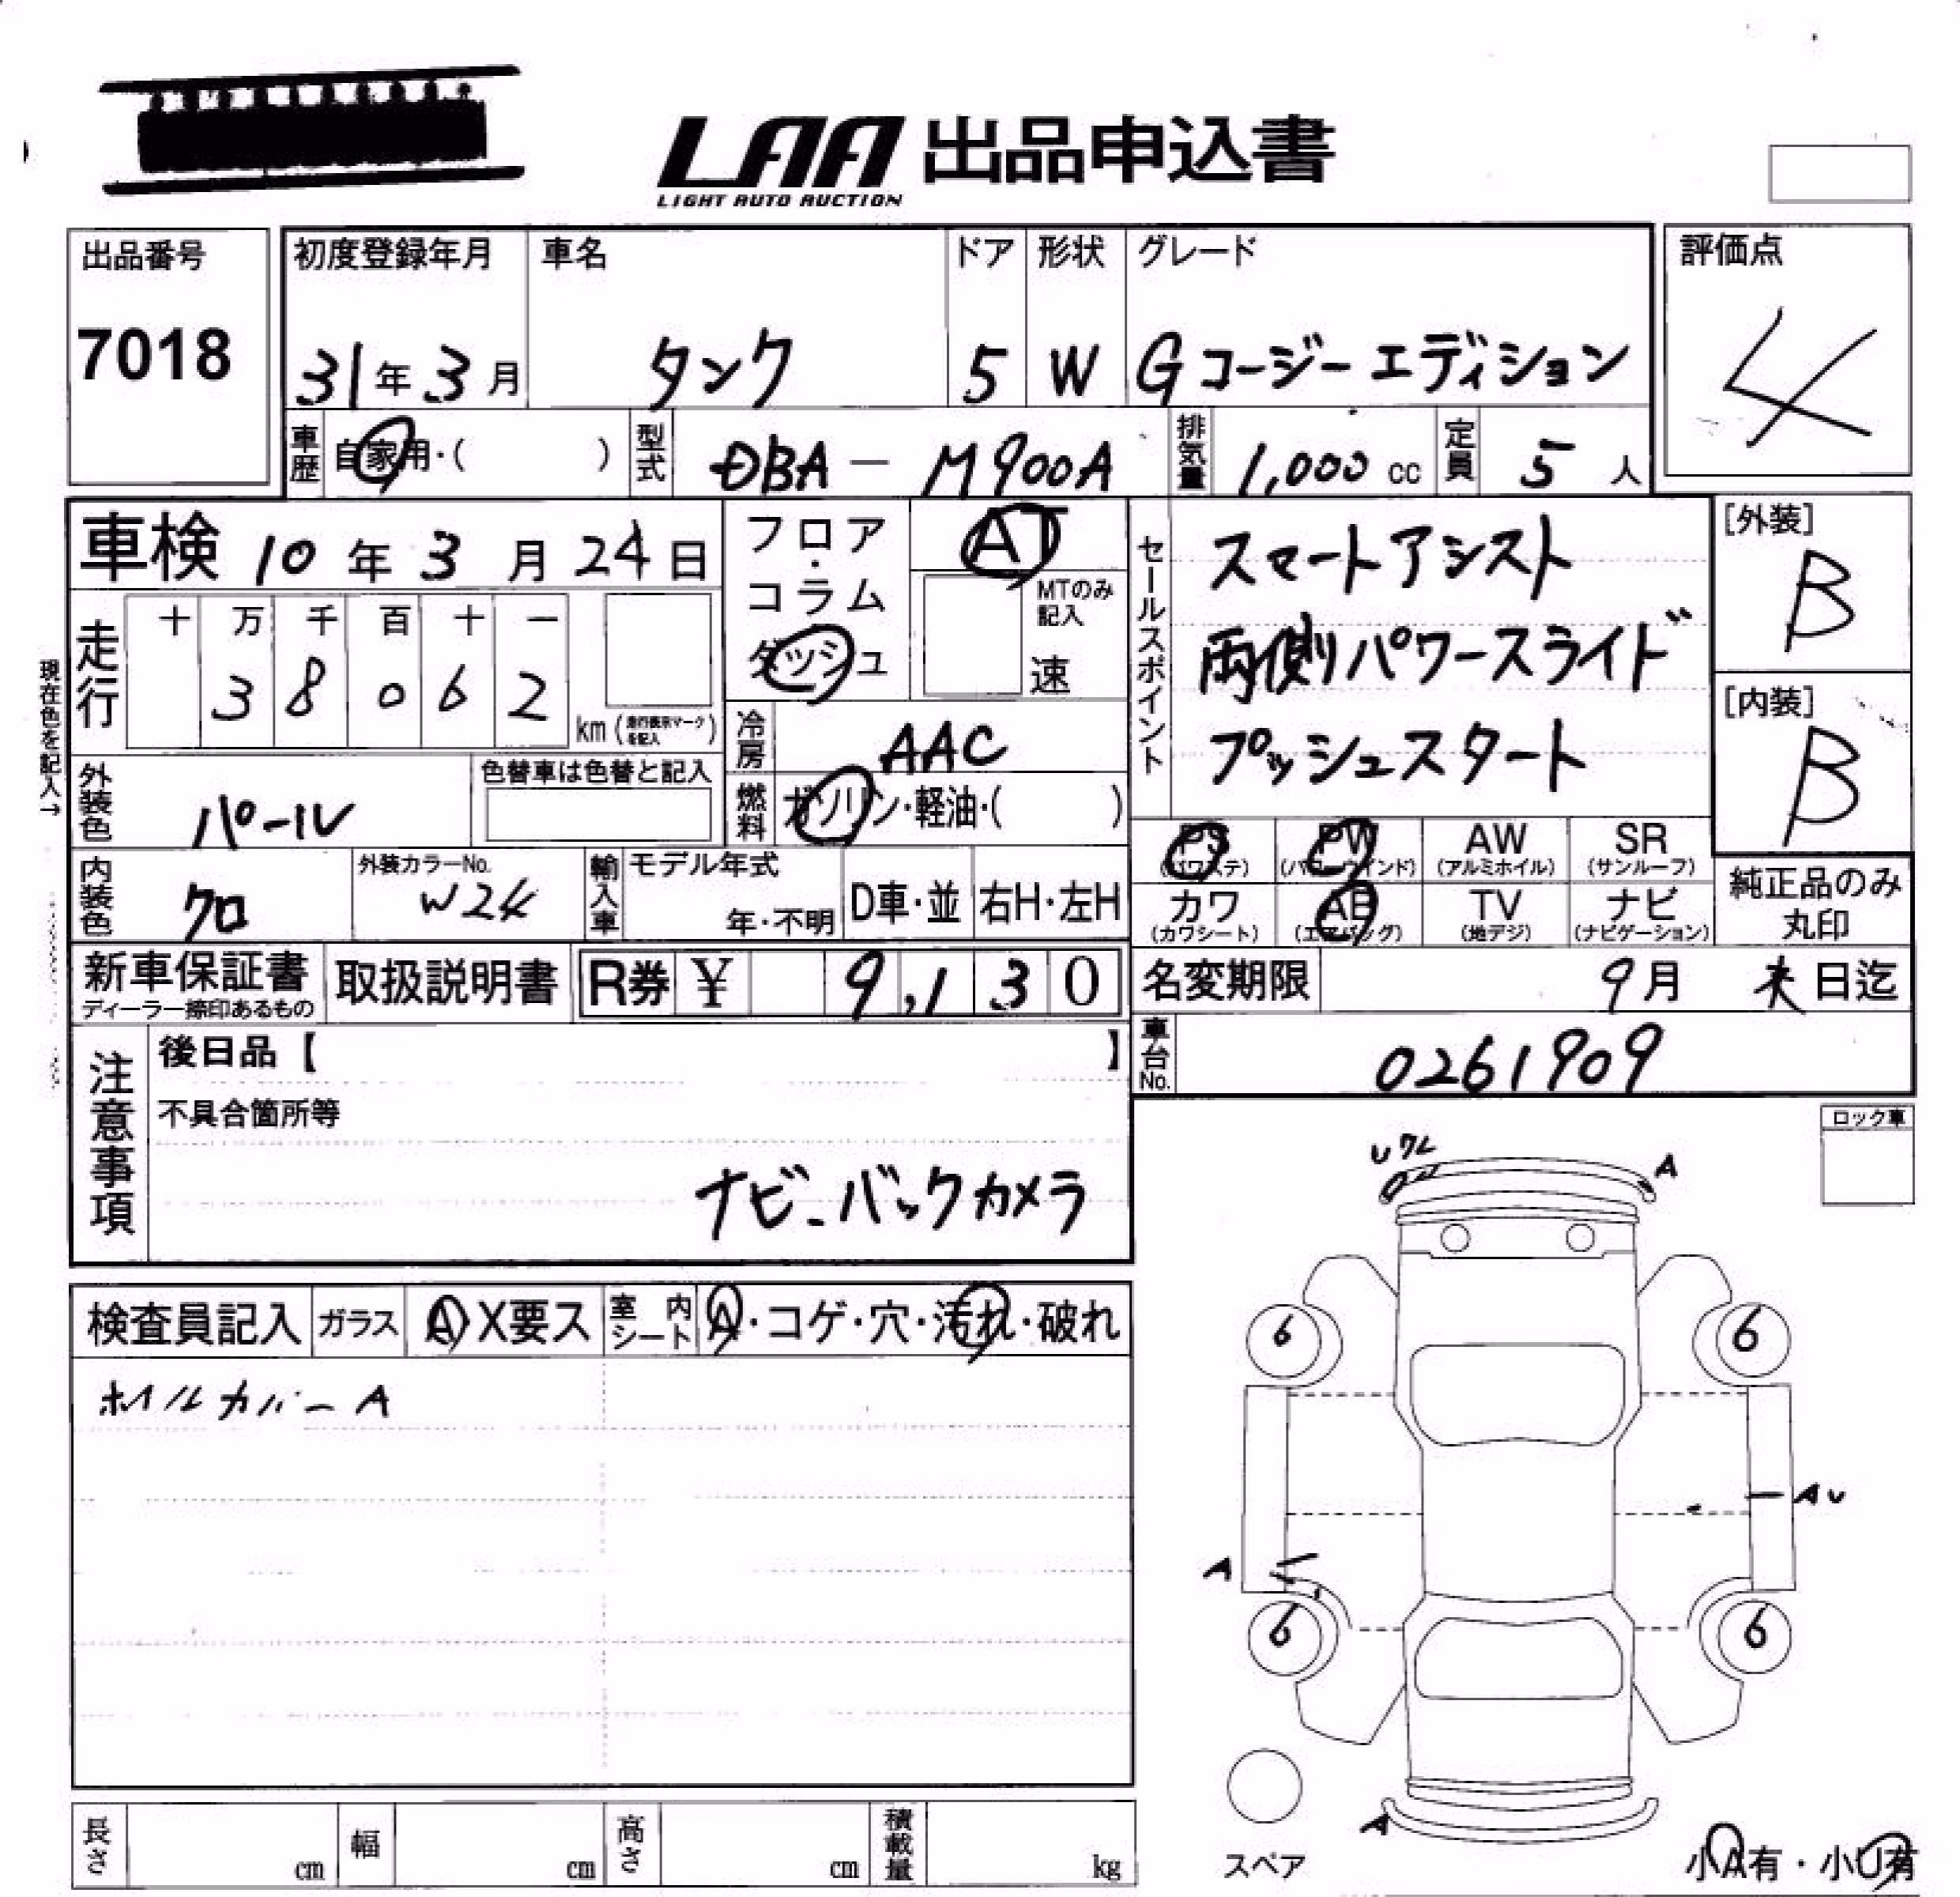 LAA 出品申込書
LIGHT AUTO AUCTION
出品番号
7018
初度登録年月
31年3月
車名
タンク
ドア
5
形状
W
グレード
G コージーエディション
評価点
4
車歴
自家用・( )
型式
DBA－M900A
排気量
1,000 cc
定員
5 人
車検 10年3月24日
フロア・コラム
ダッシュ
AT
MTのみ記入
速
セールスポイント
スマートアシスト
両側パワースライド
プッシュスタート
[外装]
B
[内装]
B
現在色を記入→
走行
十 万 千 百 十 一
3 8 0 6 2
km (走行表示マークを記入)
冷房
AAC
外装色
パール
色替車は色替と記入
燃料
ガソリン・軽油・( )
PS
(パワステ)
PW
(パワーウインド)
AW
(アルミホイル)
SR
(サンルーフ)
カワ
(カワシート)
AB
(エアバッグ)
TV
(地デジ)
ナビ
(ナビゲーション)
純正品のみ
丸印
内装色
クロ
外装カラーNo.
W24
輸入車
モデル年式
年・不明
D車・並
右H・左H
新車保証書
ディーラー捺印あるもの
取扱説明書
R券 ¥ 9,130
名変期限
9月 末日迄
車台No.
0261909
注意事項
後日品【 】
不具合箇所等
ナビ・バックカメラ
ロック車
検査員記入
ガラス
A X要ス
室内シート
A・コゲ・穴・汚れ・破れ
ホイルカバーA
A
6
6
AU
A
6
6
A
スペア
小A有・小U有
長さ
cm
幅
cm
高さ
cm
積載量
kg